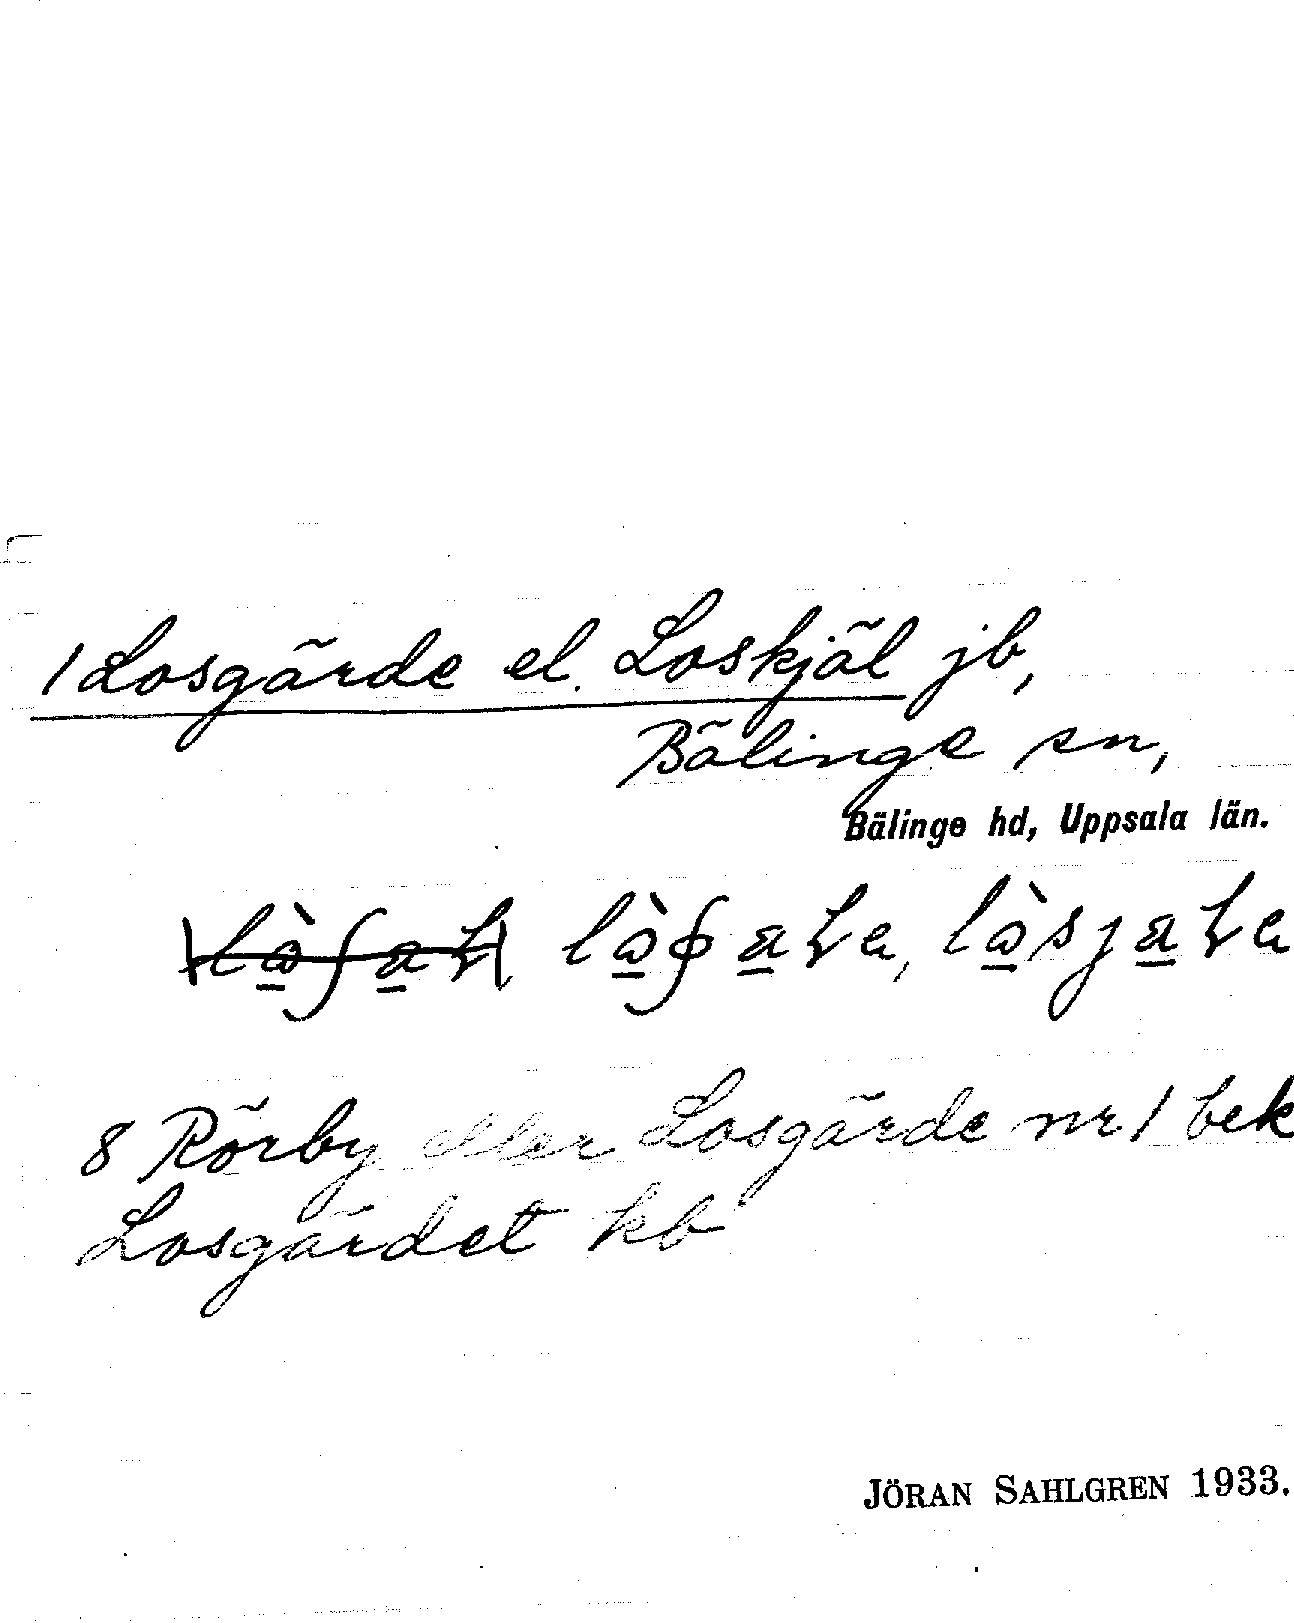 1 Losgärde el. Loskjäl jb,
Bälinge sn,
Bälinge hd, Uppsala län.
8 Rörby eller Losgärde nr 1 bek
Losgärdet kb
JÖRAN SAHLGREN 1933.